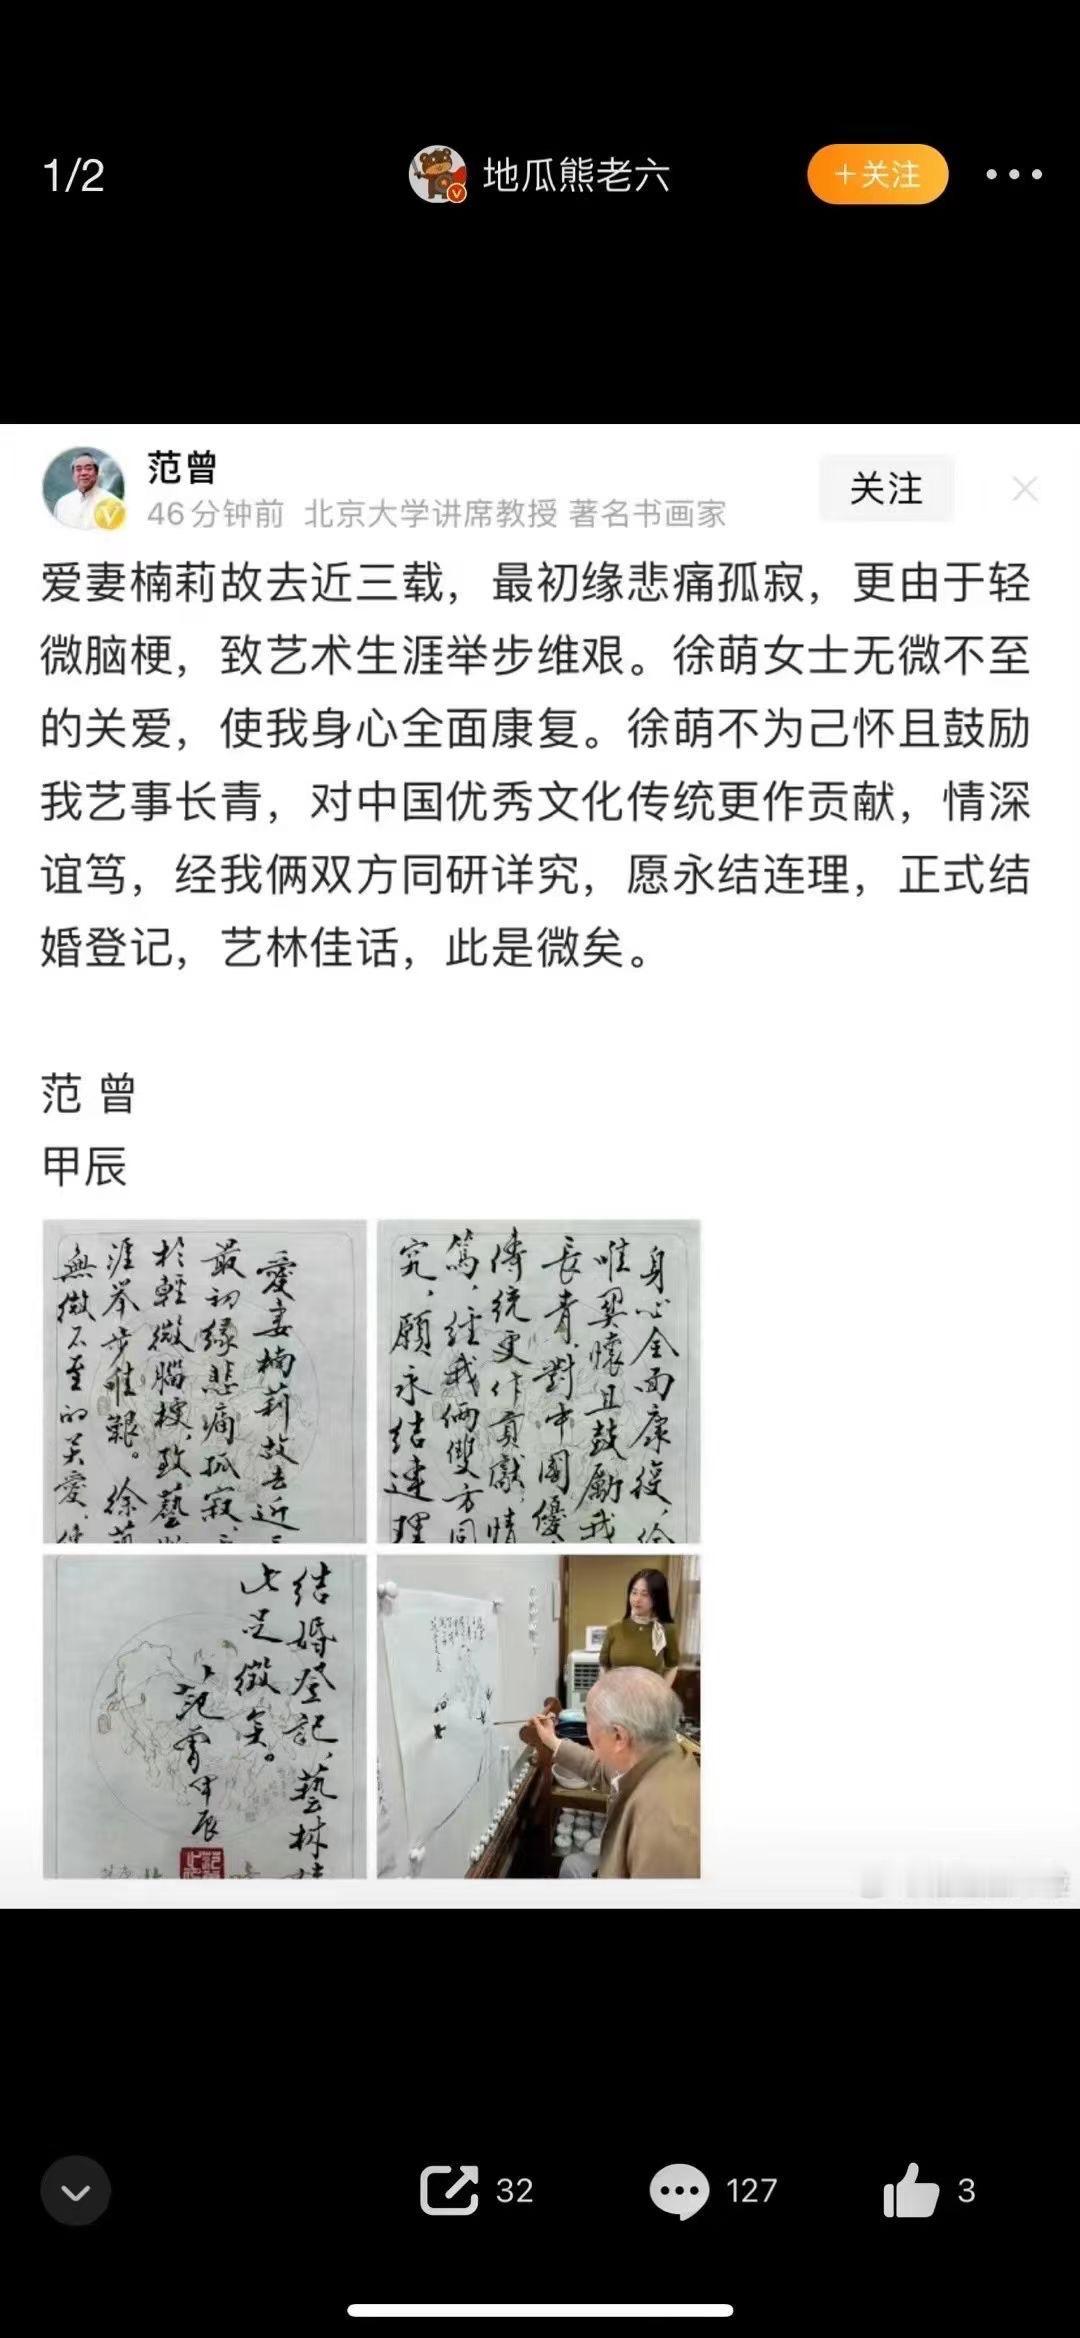 1/2
地瓜熊老六
+关注
范曾
关注
46分钟前 北京大学讲席教授 著名书画家
爱妻楠莉故去近三载，最初缘悲痛孤寂，更由于轻
微脑梗，致艺术生涯举步维艰。徐萌女士无微不至
的关爱，使我身心全面康复。徐萌不为己怀且鼓励
我艺事长青，对中国优秀文化传统更作贡献，情深
谊笃，经我俩双方同研详究，愿永结连理，正式结
婚登记，艺林佳话，此是微矣。
范 曾
甲辰
愛妻楠莉故去近
最初缘悲痛孤寂、
於輕微腦梗、致藝
涯举步維艱。徐萌
無微不至的关愛、使
身心全面康復、徐
懷且鼓勵我
長青、對中國優
傳統更作貢獻、情
篤、經我倆雙方同
究、願永结連理
结婚登記、藝林
此是微矣。
范曾甲辰
32
127
3